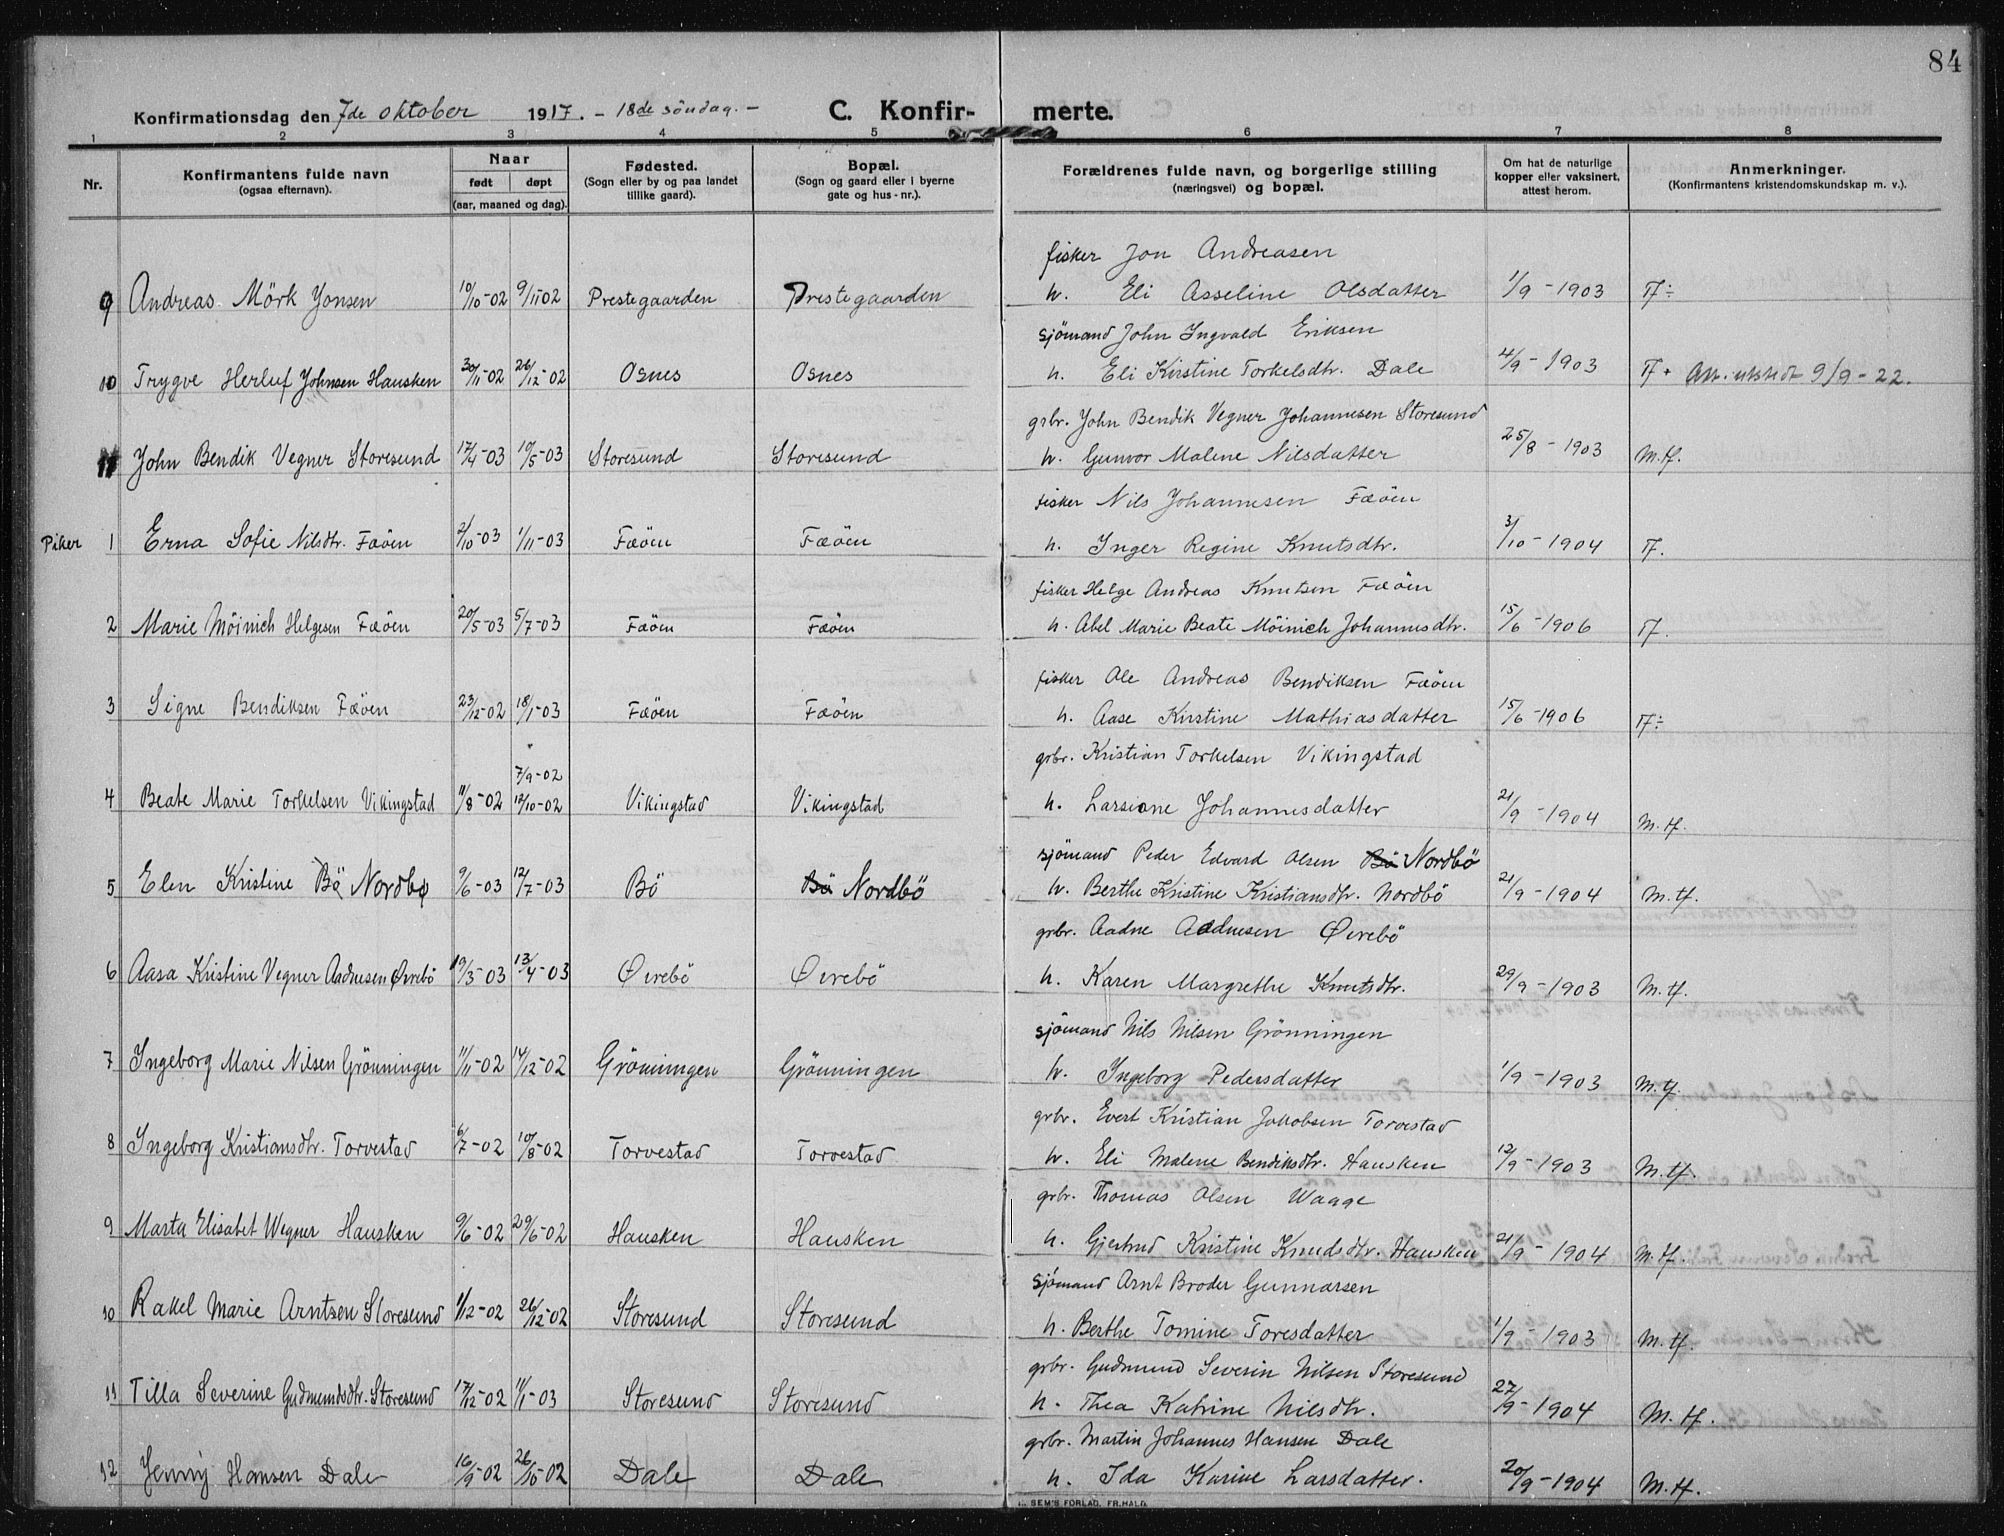 84
Konfirmationsdag den 7de oktober 1917. - 18de söndag. - C. Konfirmerte.
1 2 3 4 5 6 7 8
Nr. Konfirmantens fulde navn (ogsaa efternavn). Naar født døpt (aar, maaned og dag). Fødested. (Sogn eller by og paa landet tillike gaard). Bopæl. (Sogn og gaard eller i byerne gate og hus-nr.). Forældrenes fulde navn, og borgerlige stilling (næringsvei) og bopæl. Om hat de naturlige kopper eller vaksinert, attest herom. Anmerkninger. (Konfirmantens kristendomskundskap m. v.).
fisker Jon Andreasen
9 Andreas Mörk Jonsen 10/10-02 9/11-02 Prestegaarden Prestegaarden h. Eli Asseline Olsdatter 1/9-1903 T÷
sjömand John Ingvald Eriksen
10 Trygve Herluf Johnsen Hausken 30/11-02 26/12-02 Osnes Osnes h. Eli Kirstine Torkelsdtr. Dale 4/9-1903 T+ Att. utstedt 9/9-22.
grbr. John Bendik Vegner Johannesen Storesund
11 John Bendik Vegner Storesund 17/4-03 10/5-03 Storesund Storesund h. Gunvor Malene Nilsdatter 25/8-1903 M.tf.
fisker Nils Johannesen Fæöen
Piker 1 Erna Sofie Nilsdtr. Fæöen 2/10-03 1/11-03 Fæöen Fæöen h. Inger Regine Knutsdtr. 3/10-1904 T.
fisker Helge Andreas Knutsen Fæöen
2 Marie Möinich Helgesen Fæöen 20/5-03 5/7-03 Fæöen Fæöen h. Abel Marie Beate Möinich Johannesdtr. 15/6-1906 T.
fisker Ole Andreas Bendiksen Fæöen
3 Signe Bendiksen Fæöen 23/12-02 18/1-03 Fæöen Fæöen h. Aase Kirstine Mathiasdatter 15/6-1906 T÷
grbr. Kristian Torkelsen Vikingstad
7/9-02
4 Beate Marie Torkelsen Vikingstad 11/8-02 12/10-02 Vikingstad Vikingstad h. Larsiane Johannesdatter 21/9-1904 M.tf.
sjömand Peder Edvard Olsen Bö Nordbö
5 Elen Kristine Bö Nordbø 9/6-03 12/7-03 Bö Bö Nordbö h. Berthe Kristine Kristiansdtr. Nordbö 21/9-1904 M.tf.
grbr. Aadne Aadnesen Øvrebö
6 Aasa Kristine Vegner Aadnesen Øvrebö 19/3-03 13/4-03 Øvrebö Øvrebö h. Karen Margrethe Knutsdtr. 29/9-1903 M.tf.
sjömand Nils Nilsen Grönningen
7 Ingeborg Marie Nilsen Grönningen 11/11-02 14/12-02 Grönningen Grönningen h. Ingeborg Pedersdatter 1/9-1903 M.tf.
grbr. Evert Kristian Jakobsen Torvestad
8 Ingeborg Kristiansdtr. Torvestad 6/7-02 10/8-02 Torvestad Torvestad h. Eli Malene Bendiksdtr. Hausken 12/9-1903 M.tf.
grbr. Thomas Olsen Waage
9 Marta Elisabet Wegner Hausken 9/6-02 29/6-02 Hausken Hausken h. Gjertrud Kristine Knudsdtr. Hausken 21/9-1904 M.tf.
sjömand Arnt Broder Gunnarsen
10 Rakel Marie Arntsen Storesund 1/12-02 26/12-02 Storesund Storesund h. Berthe Tomine Toresdatter 1/9-1903 M.tf.
grbr. Gudmund Severin Nilsen Storesund
11 Tilla Severine Gudmundsdtr. Storesund 17/12-02 11/1-03 Storesund Storesund h. Thea Katrine Nilsdtr. 27/9-1904 M.tf.
grbr. Martin Johannes Hansen Dale
12 Jenny Hansen Dale 16/9-02 26/10-02 Dale Dale h. Ida Karine Larsdatter. 20/9-1904 M.tf.
SEM'S FORLAG, FR.HALD.